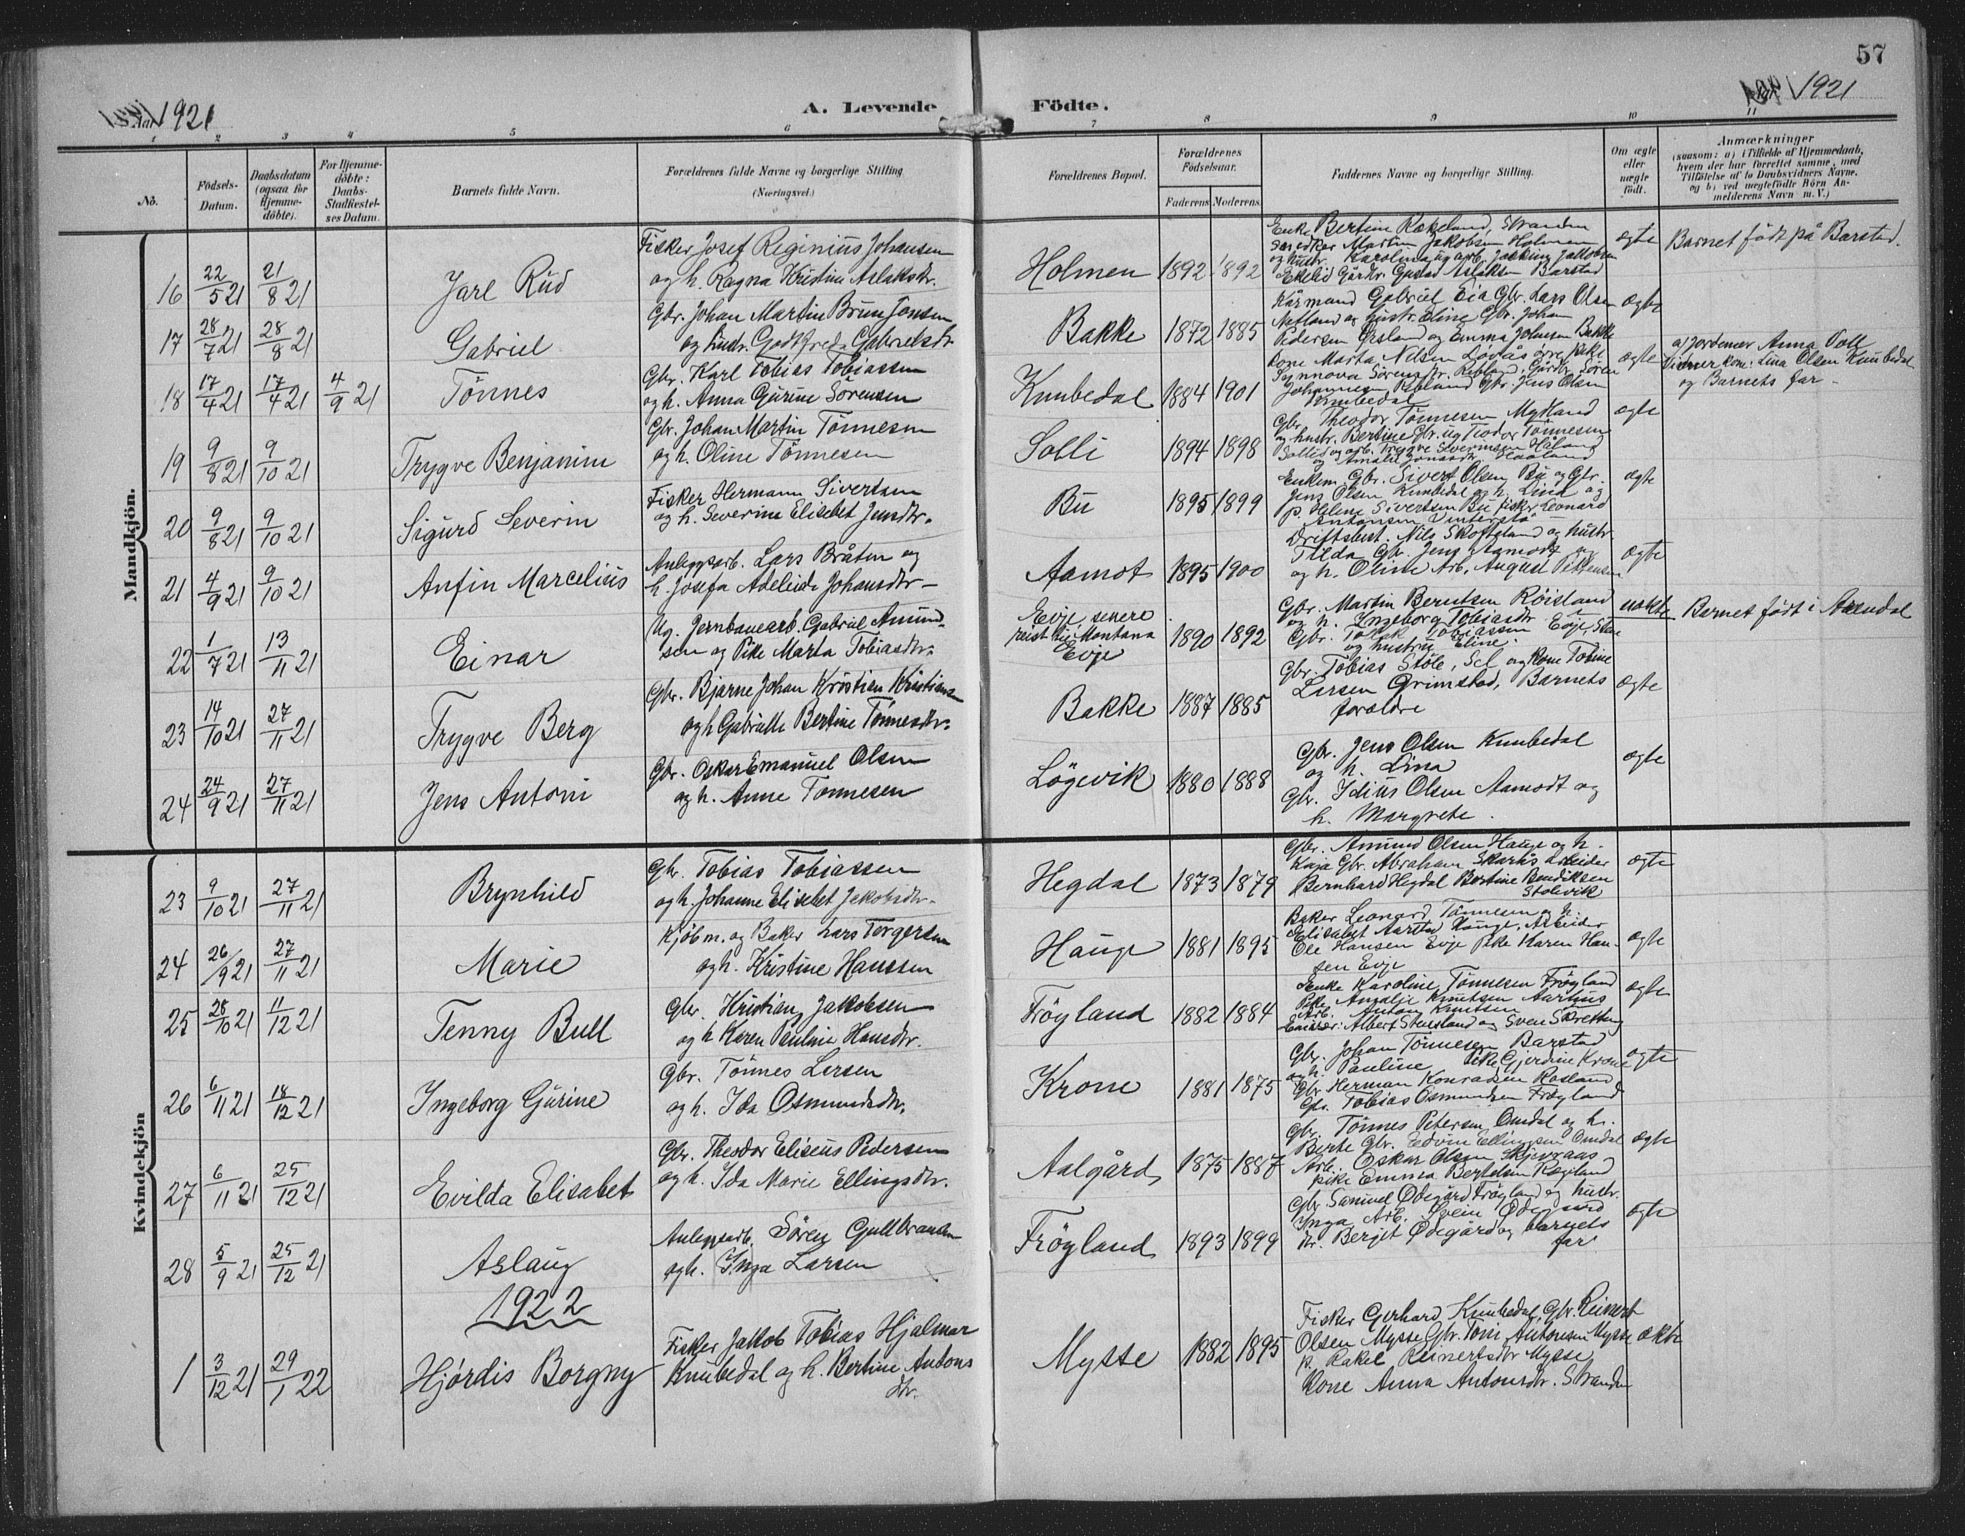 57
Aar 1921
A. Levende Födte.
Aar 1921
1 2 3 4 5 6 7 8 9 10 11
No.
Födsels-Datum.
Daabsdatum (ogsaa for Hjemme-döbte).
For Hjemme-döbte: Daabs-Stadfæstel-ses Datum.
Barnets fulde Navn.
Forældrenes fulde Navne og borgerlige Stilling (Næringsvei.)
Forældrenes Bopæl.
Forældrenes Födselsaar.
Faderens Moderens
Faddernes Navne og borgerlige Stilling.
Om ægte eller uægte födt.
Anmærkninger
(saasom: a) i Tilfælde af Hjemmedaab, hvem der har forrettet samme, med Tilföielse af to Daabsvidners Navne, og b) ved uægtefödte Börn An-melderens Navn m. V.)
Mandkjön.
16 22/5 21 21/8 21 Jarl Rüd
Fisker Josef Reginius Johansen
og h. Ragna Kristine Aslaksdr.
Holmen 1892 1892
Enke Bertine Rekeland, Stranden
Snedker Martin Jakobsen Holmen
og hustr. Karoline, ug. arb. Joakim Jakobsen
Ekelid Gårdbr. Gustav Aslaksen Barstad
ægte
Barnet født på Barstad.
17 28/7 21 28/8 21 Gabriel
Gbr. Johan Martin Brun Jonsen
og hustr. Godtfreda Gabrielsdr.
Bakke 1872 1885
Kårmand Gabriel Eia Gbr. Lars Olsen
Netland og hustr. Eline Gbr. Johan
Pedersen Ørsland og Emma Johnsen Bakke
ægte
18 17/4 21 17/4 21 4/9 21 Tönnes
Gbr. Karl Tobias Tobiassen
og h. Anna Gurine Sörensen
Knubedal 1884 1901
Kone Marta Nilsen Løvås
Johannesen Rebland Gbr. Jens Olsen
Knubedal
ægte
a) Jordemor Anna Voll
Vidner kone: Lina Olsen Knubedal
og Barnets far.
19 9/8 21 9/10 21 Trygve Benjamin
Gbr. Johan Martin Tönnesen
og h. Oline Tönnesen
Solli 1894 1898
Gbr. Theodor Tönnesen Mykland
og hustr. Bertine Gbr. ug Teodor Tönnesen
ægte
20 9/8 21 9/10 21 Sigurd Severin
Fisker Hermann Sivertsen
og h. Severine Elisabet Jensdtr.
Bu 1895 1899
Enkem. Gbr. Sivert Olsen Bu og Gbr.
Jens Olsen Knubedal og h. Lina og
p. Helene Sivertsen Bu fisker Leonard
Antonsen Vinterstø
ægte
21 4/9 21 9/10 21 Anfin Marcelius
Anleggsarb. Lars Bråten og
h. Josefa Adeleide Johansdtr.
Aamot 1895 1900
Driftsbest. Nils Skofteland og hustr.
Tilda Gbr. Jens Aamodt og
og h. Oline Arb. August Pettersen
ægte
22 1/7 21 13/11 21 Einar
Ug. Jernbanearb. Gabriel Amund-
sen og Pike Marta Tobiasdtr.
Evje, senere
reist til Montana
Evje
1890 1892
Gbr. Martin Berntsen Röisland
og h. Ingeborg Tobiasdtr.
Gbr. Tobiassen Evje
og hustru Eline
uekte
Barnet født i Arendal
23 14/10 21 27/11 21 Trygve Berg
Gbr. Bjarne Johan Kristian Kristians
og h Gabrielle Bertine Tönnesdtr.
Bakke 1887 1885
Gbr. Tobias Støle, Sel og Kone Tobine
Larsen Grimstad, Barnets
foreldre
ægte
24 24/9 21 27/11 21 Jens Antoni
Gbr. Oskar Emanuel Olsen
og h. Anne Tönnesen
Lögevik 1880 1888
Gbr. Jens Olsen Knubedal
og h. Lina
Gbr. Idius Olsen Aamodt og
h. Margrete.
ægte
Kvindekjön
23 9/10 21 27/11 21 Brynhild
Gbr. Tobias Tobiassen
og h. Johanne Elisebet Jakobsdtr.
Hegdal 1873 1879
Gbr. Amund Olsen Hauge og h.
Kaja Gbr. Abraham Skarås Arbeider
Bernhard Hegdal Bertine Bendiksen
Stolevik
ægte
24 26/9 21 27/11 21 Marie
Kjöbm. og Baker Lars Torgersen
og h. Kristine Hanssen
Hauge 1881 1895
Baker Leonard Tönnesen og h.
Elisabet Aarstad Hauge, Arbeider
Ole Hansen Evje Pike Karen Han-
sen Evje
ægte
25 28/10 21 11/12 21 Tenny Bull
Gbr. Kristian Jakobsen
og h Karen Pauline Hansdtr.
Fröyland 1882 1884
Enke Karoline Tönnesen Fröyland
Pike Amalie Knutsen Aarhus
Arb. Anton Knutsen
Emisær: Albert Stuesland og Sven Skretting
ægte
26 6/11 21 18/12 21 Ingeborg Gürine
Gbr. Tönnes Larsen
og h. Ida Osmundsdtr.
Krone 1881 1875
Gbr. Johan Tönnesen Barstad
og h. Pauline Pike Gjerdine Krone
Gbr Herman Konradsen Rosland
Gbr. Tobias Osmundsen Frøyland
ægte
27 6/11 21 25/12 21 Evilda Elisabet
Gbr. Theodor Eliseus Pedersen
og h. Ida Marie Ellingsdtr.
Aalgård 1875 1887
Gbr. Tönnes Petersen Omdal og h.
Berte Gbr. Edvin Ellingsen Omdal
Arb. Oskar Olsen Skjevraas
pike Emma Bertelsen Røyland
ægte
28 5/9 21 25/12 21 Aslaug
Anleggsarb. Sören Gulbrandsen
og h. Inga Larsen
Fröyland 1893 1899
Gbr Samuel Ødegård Frøyland og hustr.
Inga Arb. Svein Ødegaard
Fr. Berjit Ødegård og barnets
far
ægte
1922
1 3/12 21 29/1 22 Hjørdis Borgny
Fisker Jakob Tobias Hjalmar
Knubedal og h. Bertine Antons
dtr.
Mysse 1882 1895
Fisker Gerhard Knubedal, Gbr. Reinert
Olsen Mysse Gbr. Tom Antonsen Mysse
p. Rakel Reinertsdtr Mysse
Kone Anna Antonsdtr. Stranden
ekte